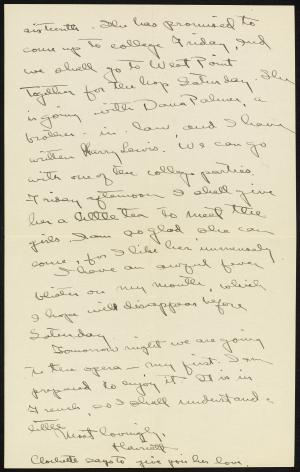 sixteenth. She has promised to
come up to college Friday, and
we shall go to West Point
together for the hop Saturday. She
is going with Dana Palmer, a
brother-in-law, and I have
written Harry Lewis. We can go
with one of the college parties.
Friday afternoon I shall give
her a little tea to meet the
girls. I am so glad she can
come, for I like her immensely.
I have an awful fever
blister on my mouth, which
I hope will disappear before
Saturday.
Tomorrow night we are going
to the opera - my first. I am
prepared to enjoy it. It is in
French, so I shall understand a
little.
Most lovingly,
Harriett
says to give you her love.